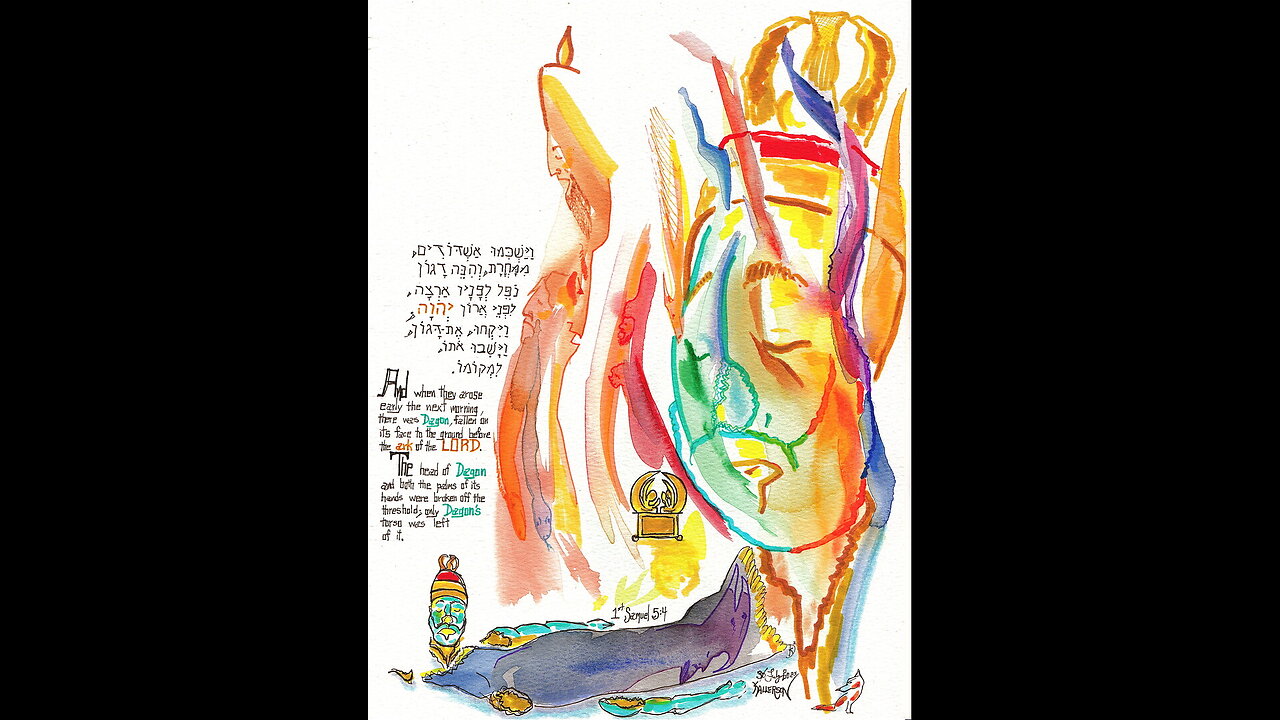 וַיַּשְׁכִּמוּ אַשְׁדּוֹדִים,
מִמָּחֳרָת, וְהִנֵּה דָגוֹן
נֹפֵל לְפָנָיו אַרְצָה,
לִפְנֵי אֲרוֹן יְהוָה
וַיִּקְחוּ, אֶת-דָּגוֹן,
וַיָּשִׁבוּ אֹתוֹ,
לִמְקוֹמוֹ.
And when they arose
early the next morning,
there was Dagon, fallen on
its face to the ground before
the ark of the LORD.
The head of Dagon
and both the palms of its
hands were broken off the
threshold; only Dagon's
torso was left
of it.
1st Samuel 5:4